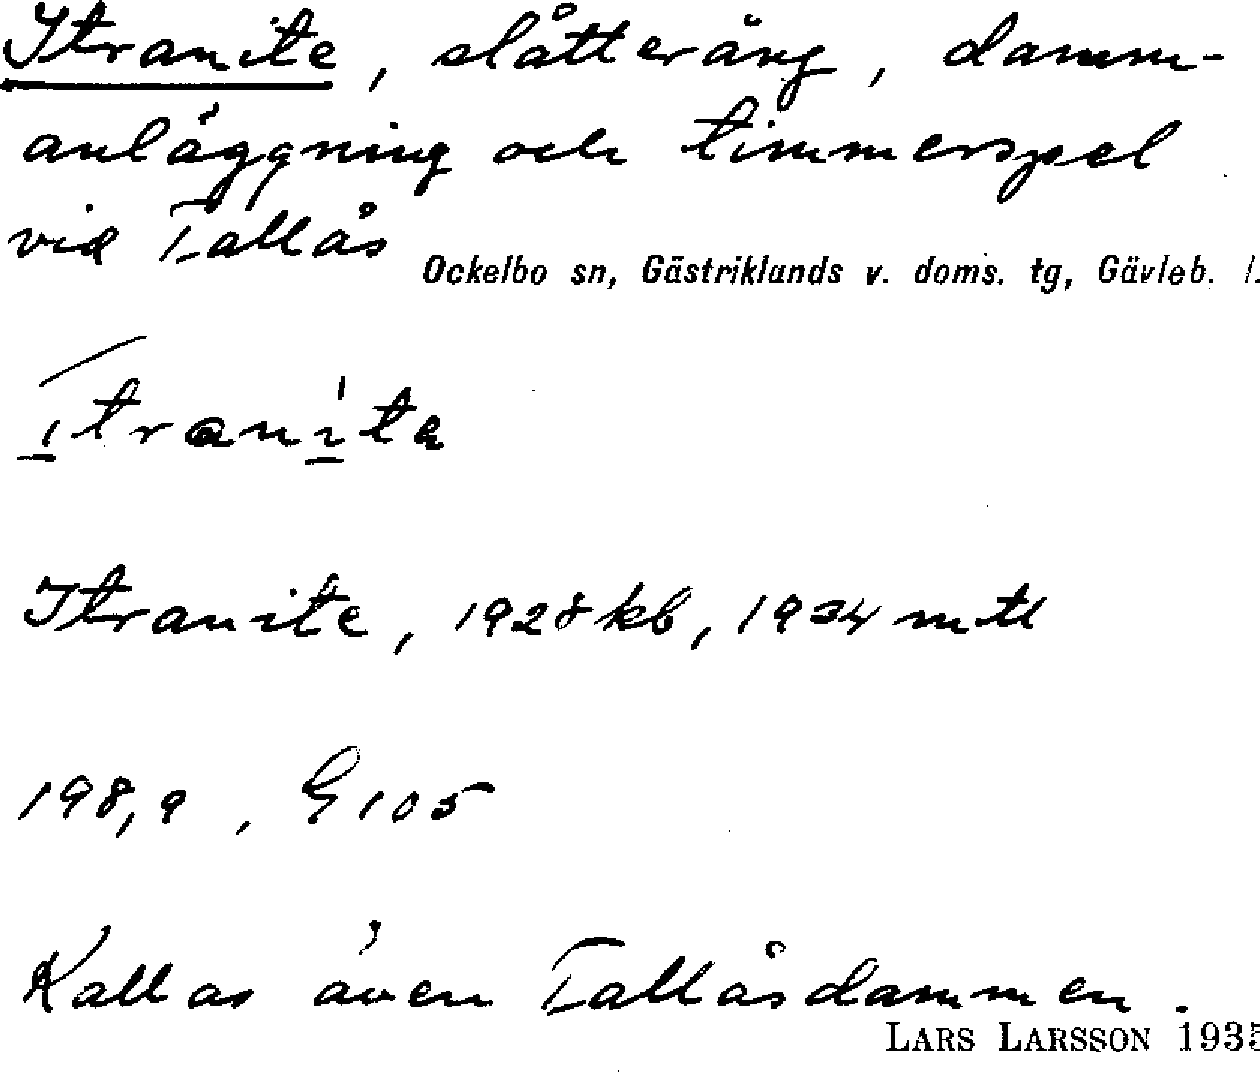 Itranite, slåtteräng, damm-
anläggning och timmerspel
vid Tallås
Ockelbo sn, Gästriklands v. doms. tg, Gävleb. l.
Itranite, 1928 kb, 1934 mtl
198,9, G 105
Kallas även Tallåsdammen.
LARS LARSSON 1935